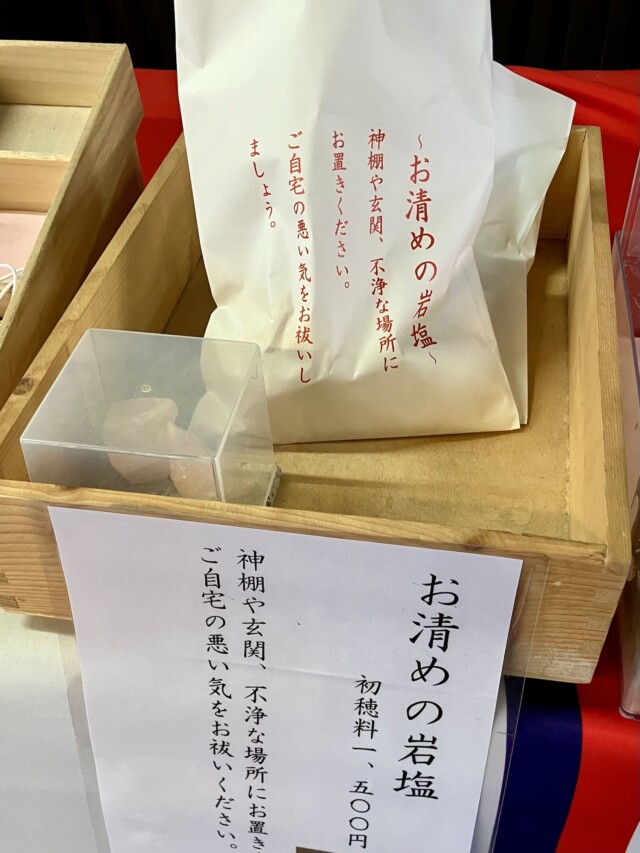 ～お清めの岩塩～
神棚や玄関、不浄な場所に
お置きください。
ご自宅の悪い気をお祓いし
ましょう。
お清めの岩塩
初穂料一、五〇〇円
神棚や玄関、不浄な場所にお置き
ご自宅の悪い気をお祓いください。